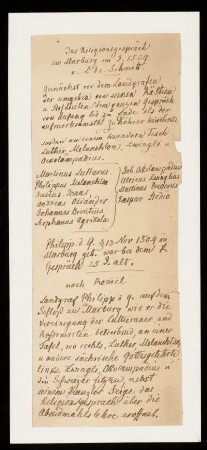 Das Religionsgespräch
zu Marburg im J. 1529
v. L. C. Schmitt
Zunächst vor dem Landgrafen
der umgeben von seinen Räthen
u Hofleuten dem ganzen Gespräch
von Anfang bis zu Ende als der
aufmerksamste Zuhörer beiwohnte
sassen an einem besondern Tisch
Luther, Melanchthon, Zwingli u
Oecolampadius.
Martinus Lutherus
Philippus Melanchthon
Justus Jonas
Andreas Osiander
Johannes Brentius
Stephanus Agrikola
Joh. Oekolampadius
Ulricus Zwinglius
Martinus Bucerus
Kaspar Hedio
Philipp d. G. 13 Nov 1504 in
Marburg geb. war bei dem
Gespräch 25 J. alt.
nach Rommel
Landgraf Philipp d. G. auf dem
Schloß zu Marburg wie er die
Vereinigung der Lutheraner und
Reformirten betreibend, an einer
Tafel, wo rechts, Luther, Melanchthon,
u andere sächsische Gottesgelehrte,
links Zwingli, Oekolampadius u
die Schweizer sitzend, nebst
seinem Kanzler Feige, das
Religionsgespräch über die
Abendmahlslehre eröffnet.